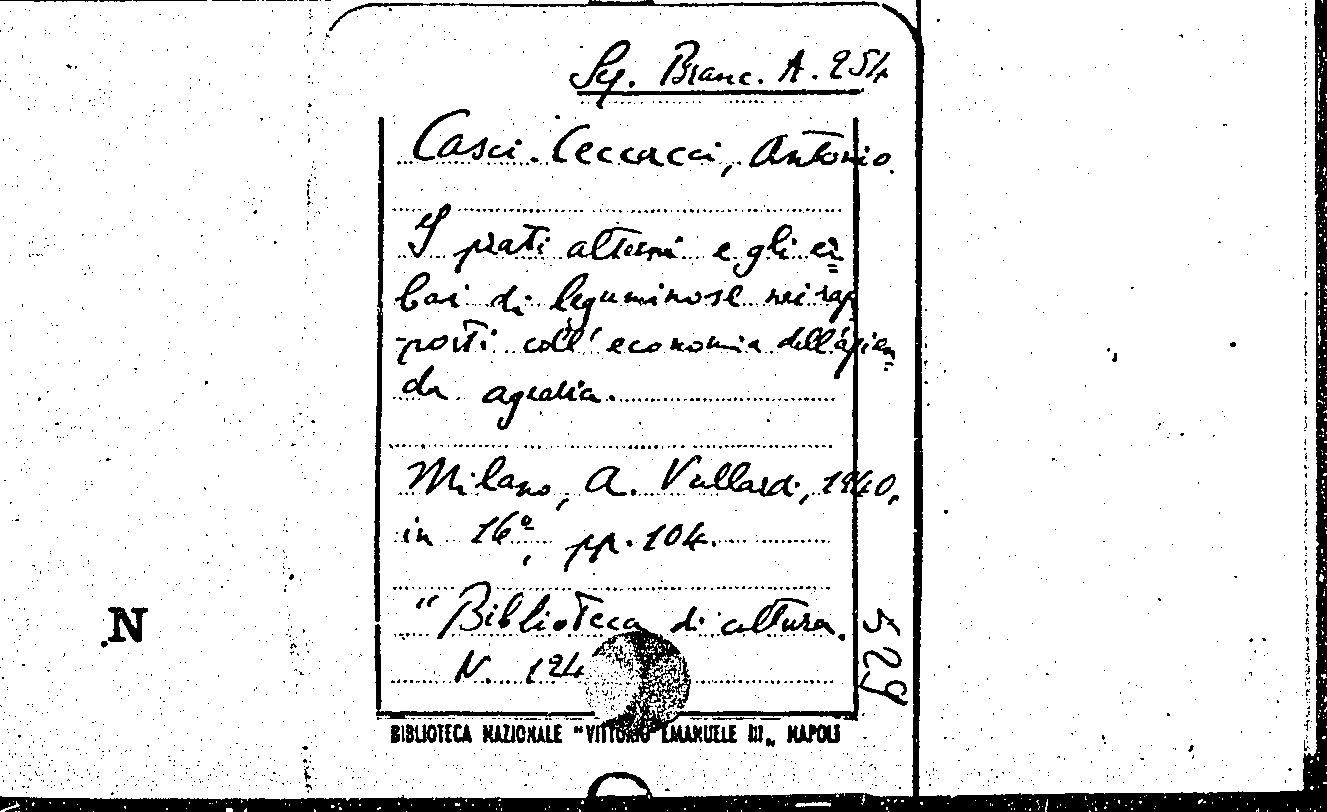 Sg. Branc. A. 254
Casci-Ceccacci, Antonio.
I prati alterni e gli er=
bai di leguminose nei rap
porti coll'economia dell'azien=
da agraria.
Milano, A. Vallardi, 1940,
in 16°, pp. 104.
"Biblioteca di cultura.
N. 124
529
N
BIBLIOTECA NAZIONALE "VITTORIO EMANUELE III„ NAPOLI